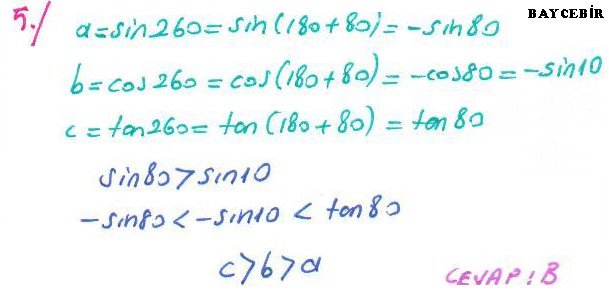 BAYCEBİR
5./ a=sin260=sin(180+80)=-sin80
b=cos260=cos(180+80)=-cos80=-sin10
c=tan260=tan(180+80)=tan80
sin80>sin10
-sin80<-sin10<tan80
c>b>a
CEVAP:B